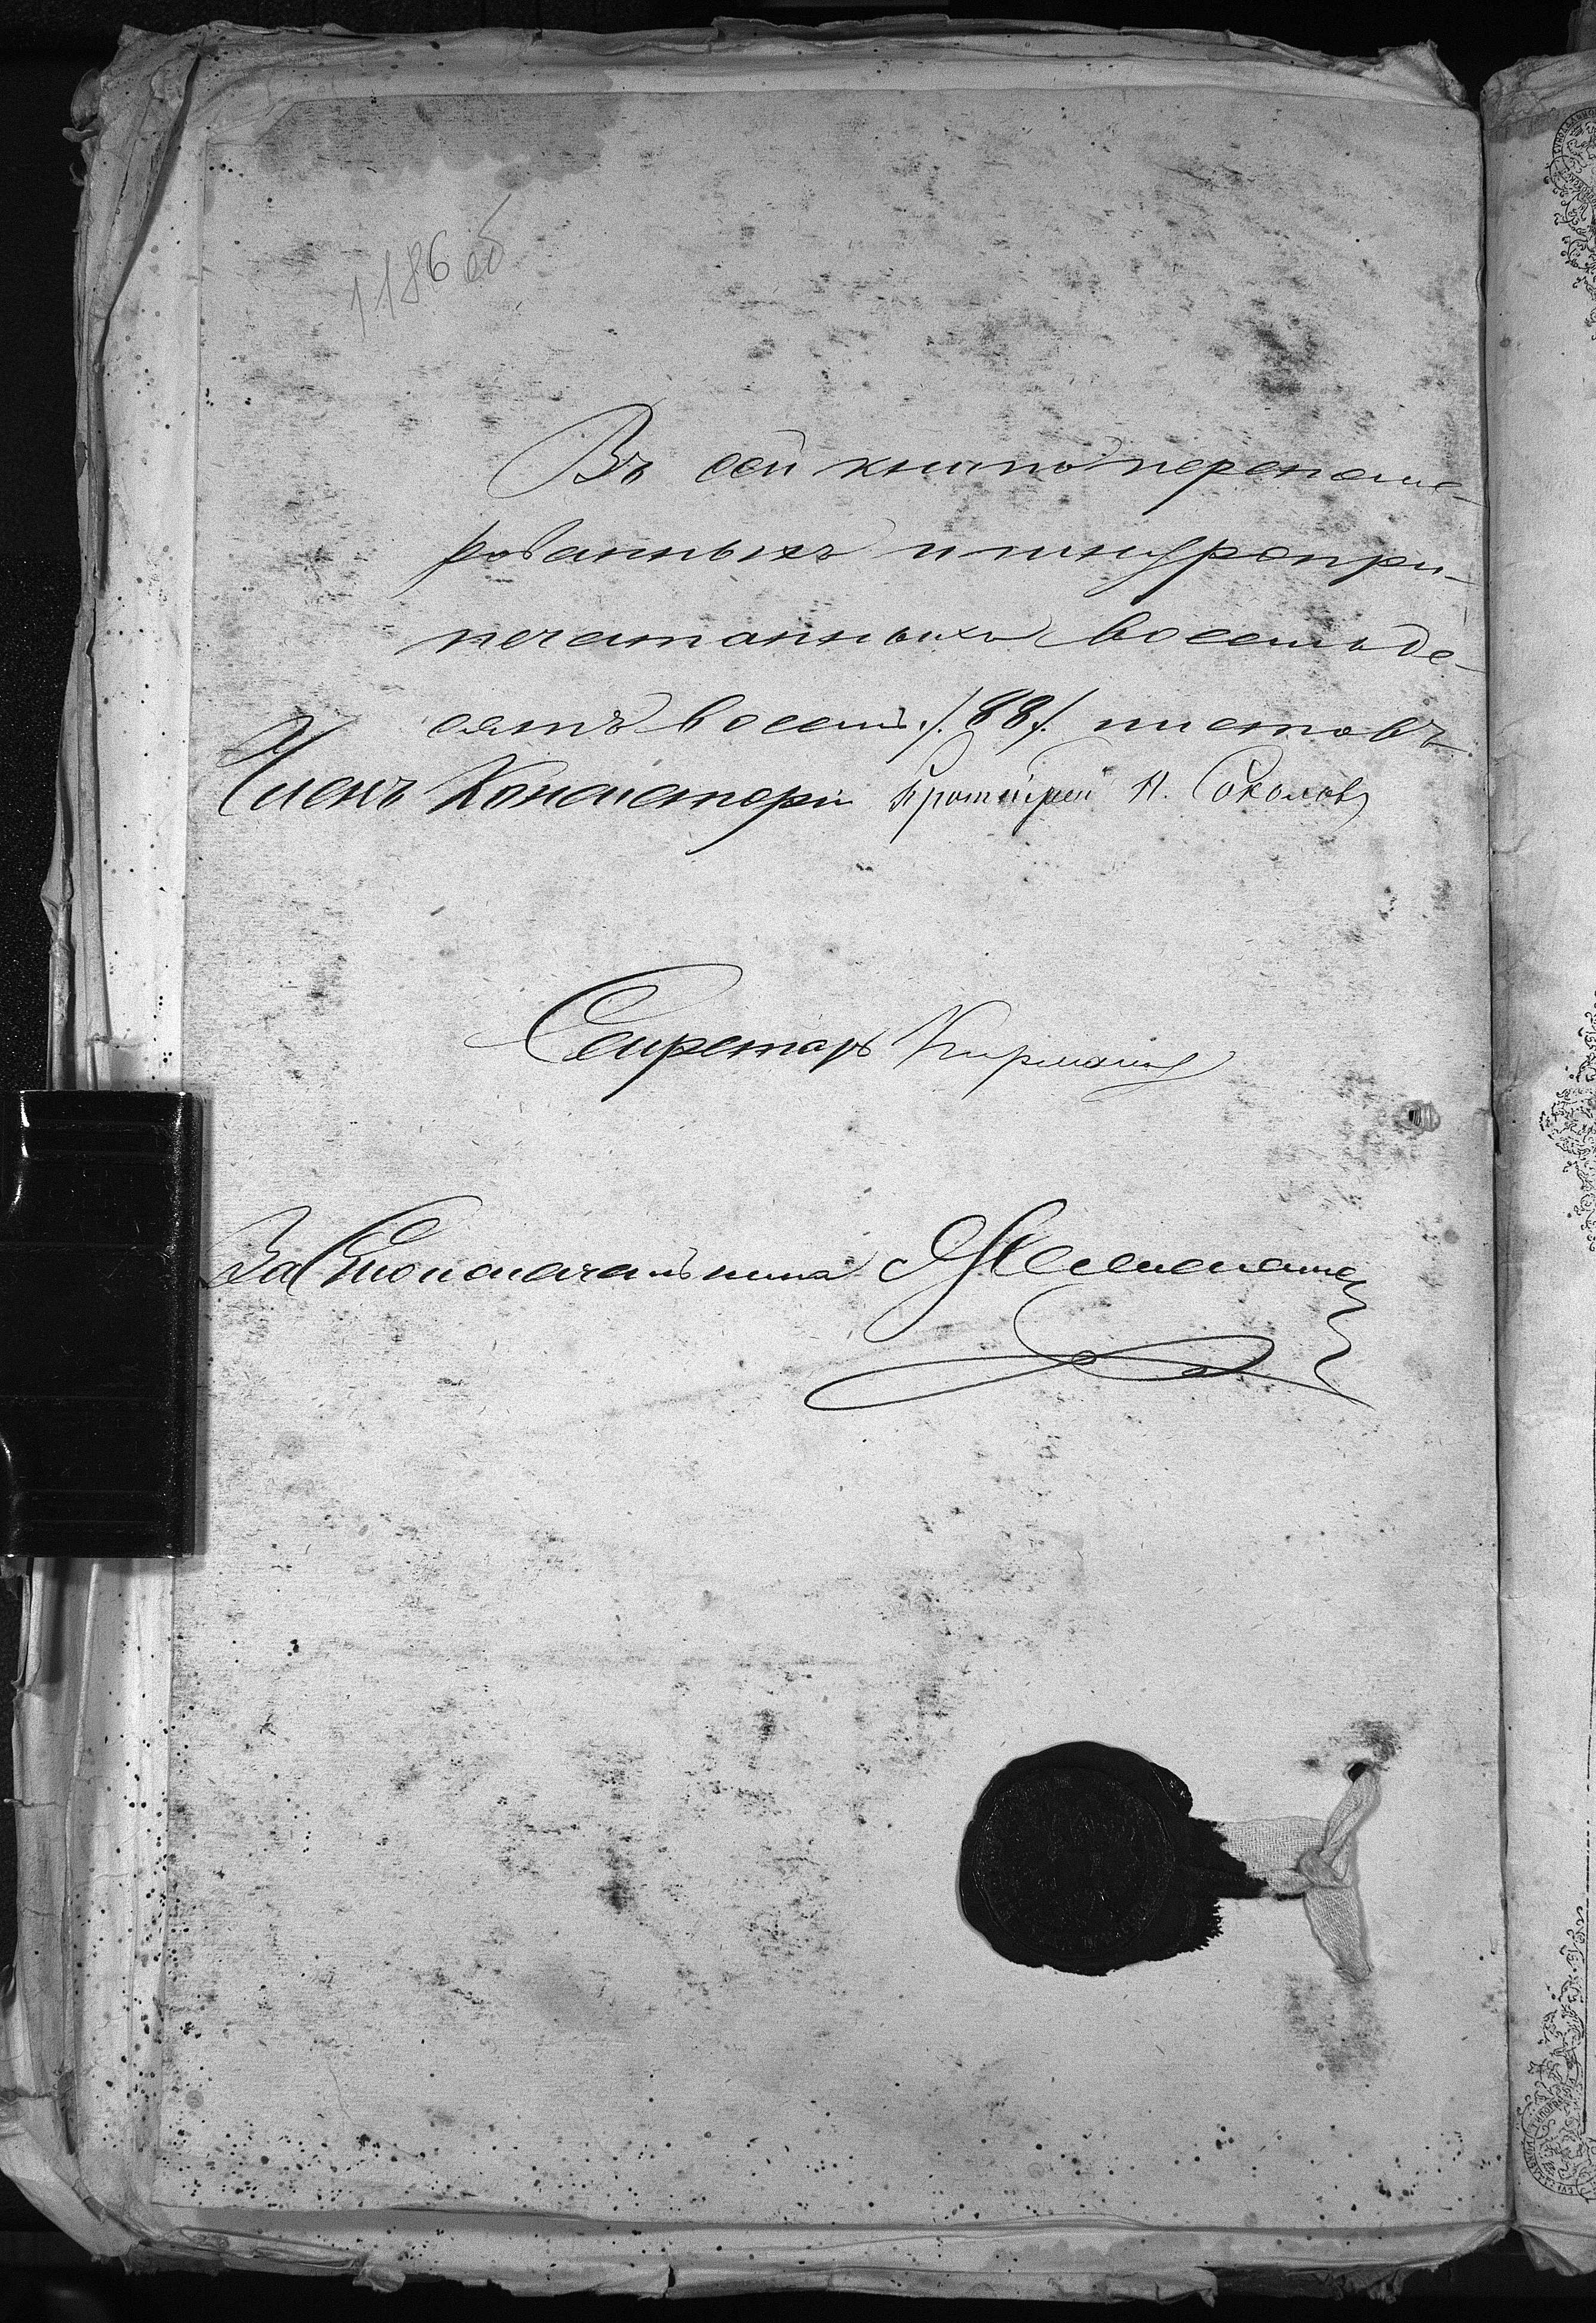 1186 об
Въ сей книгѣ перенуме-
рованныхъ и шнуропри-
печатанныхъ восемьде-
сятъ восемь /.88/. листовъ
Членъ Консисторіи Протоіерей Н. Соколовъ
Секретарь
За Столоначальника